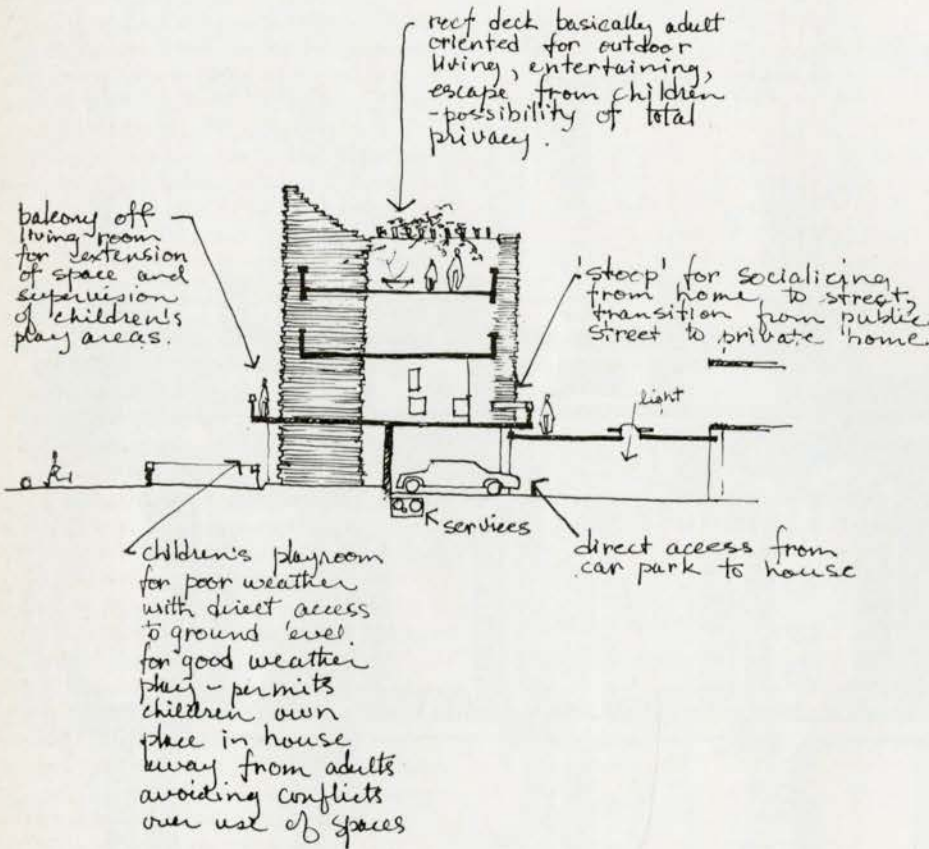 roof deck basically adult
oriented for outdoor
living, entertaining,
escape from children
-possibility of total
privacy.
balcony off
living room
for extension
of space and
supervision
of children's
play areas.
'stoop' for socializing
from home to street,
transition from public
street to private home
light
services
direct access from
car park to house
children's playroom
for poor weather
with direct access
to ground level.
for good weather
play - permits
children own
place in house
away from adults
avoiding conflicts
over use of spaces